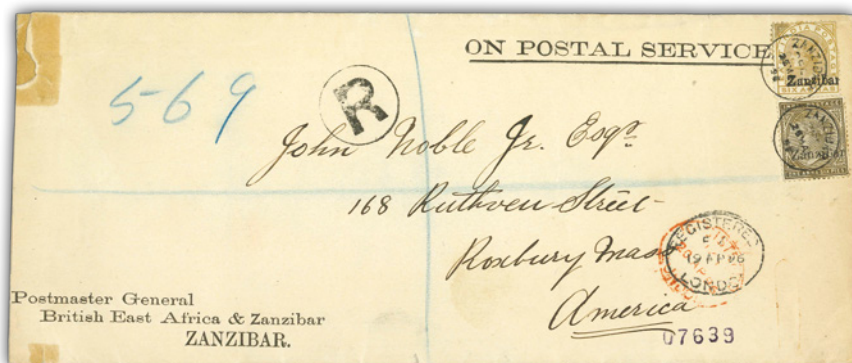 ON POSTAL SERVICE
INDIA POSTAGE
Zanzibar
SIX ANNAS
ZANZIBAR
Zanzibar
ZANZIBAR
569
R
John Noble Jr. Esqr.
168 Ruthven Street
Roxbury Mass
America
REGISTERED
19 AP 96
LONDON
07639
Postmaster General
British East Africa & Zanzibar
ZANZIBAR.